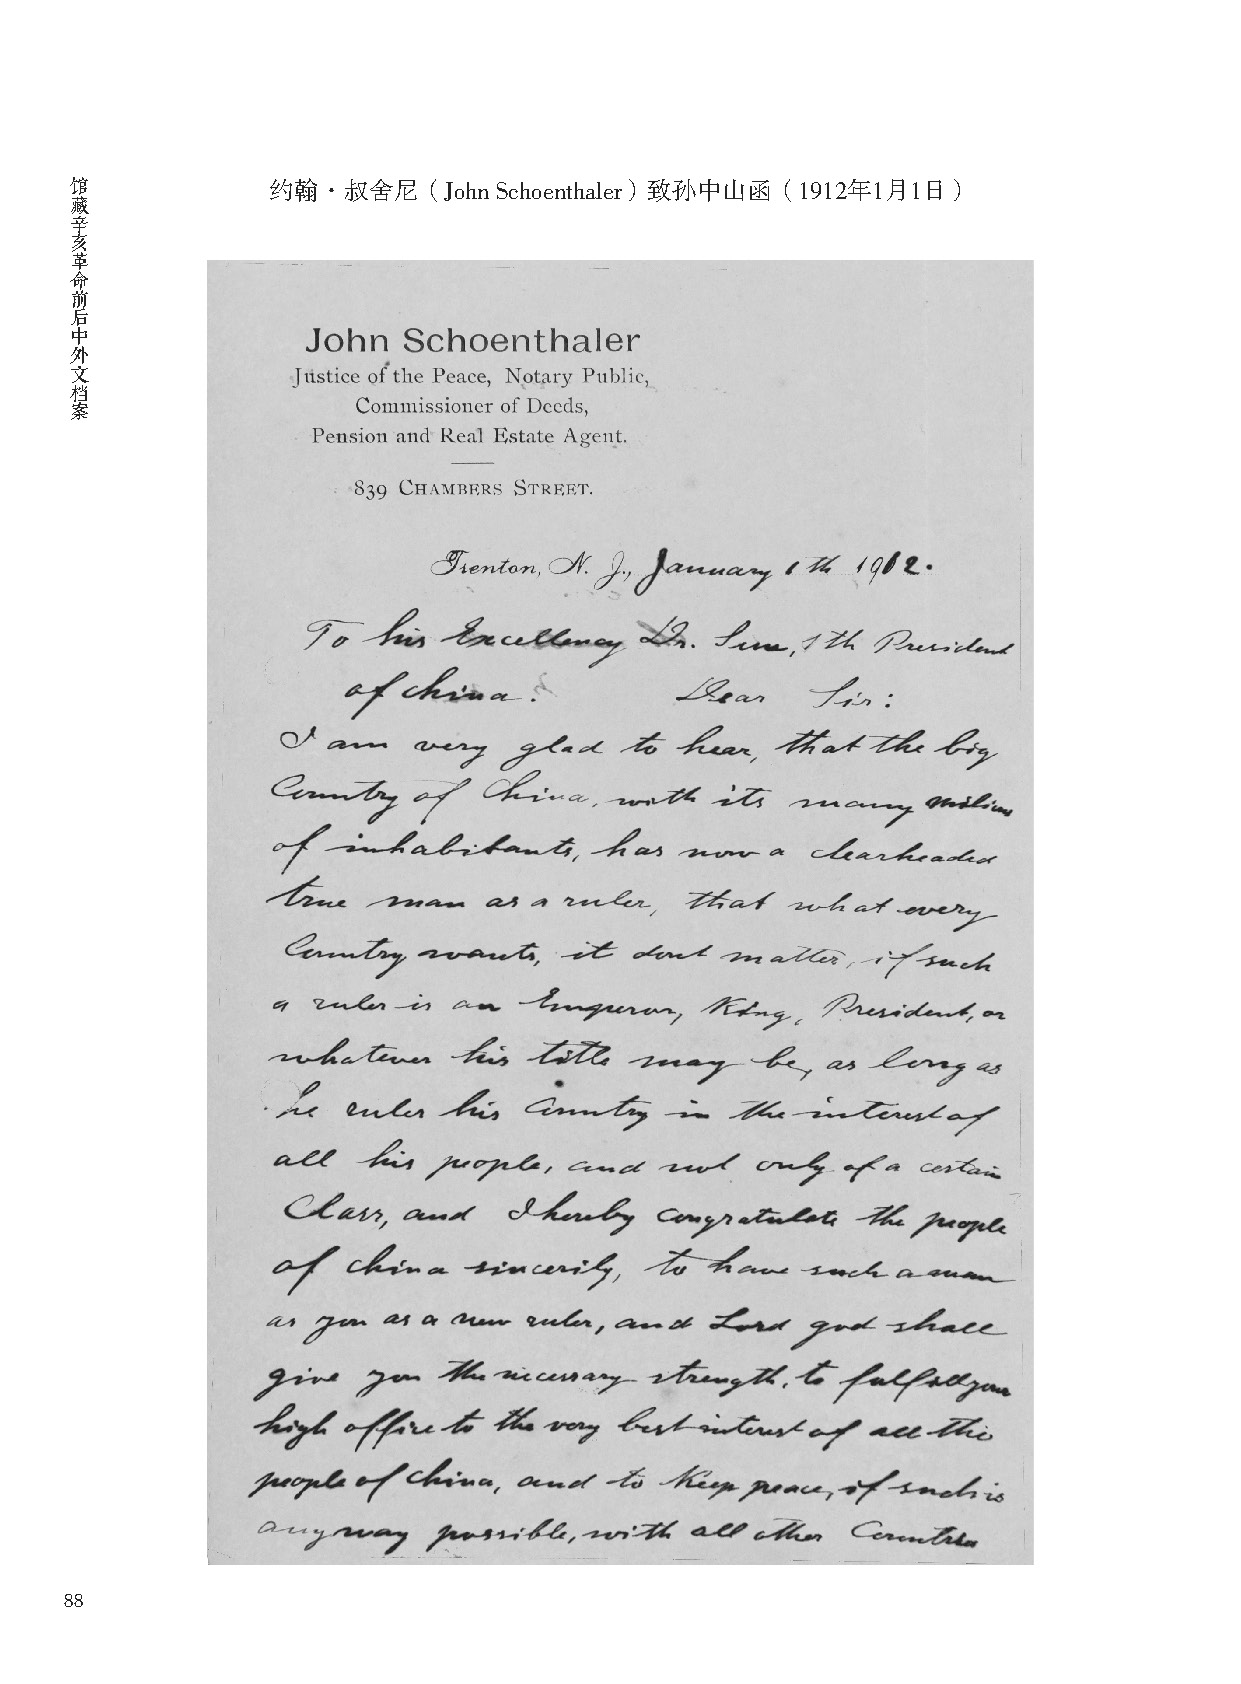 馆藏辛亥革命前后中外文档案
约翰·叔舍尼（John Schoenthaler）致孙中山函（1912年1月1日）
John Schoenthaler
Justice of the Peace, Notary Public,
Commissioner of Deeds,
Pension and Real Estate Agent.
839 CHAMBERS STREET.
Trenton, N. J., January 1th 1912.
To his Excellency Dr. Sun, 1th President
of China. Dear Sir:
I am very glad to hear, that the big
Country of China, with its many milions
of inhabitants, has now a clearheaded
true man as a ruler, that what every
Country wants, it dont matter, if such
a ruler is an Emperor, King, President, or
whatever his title may be, as long as
he rules his Country in the interest of
all his people, and not only of a certain
Class, and I hereby congratulate the people
of China sincerily, to have such a man
as you as a new ruler, and Lord god shall
give you the necessary strength, to fulfill your
high office to the very best interest of all the
people of China, and to Keep peace, if such is
anyway possible, with all other Countries
88